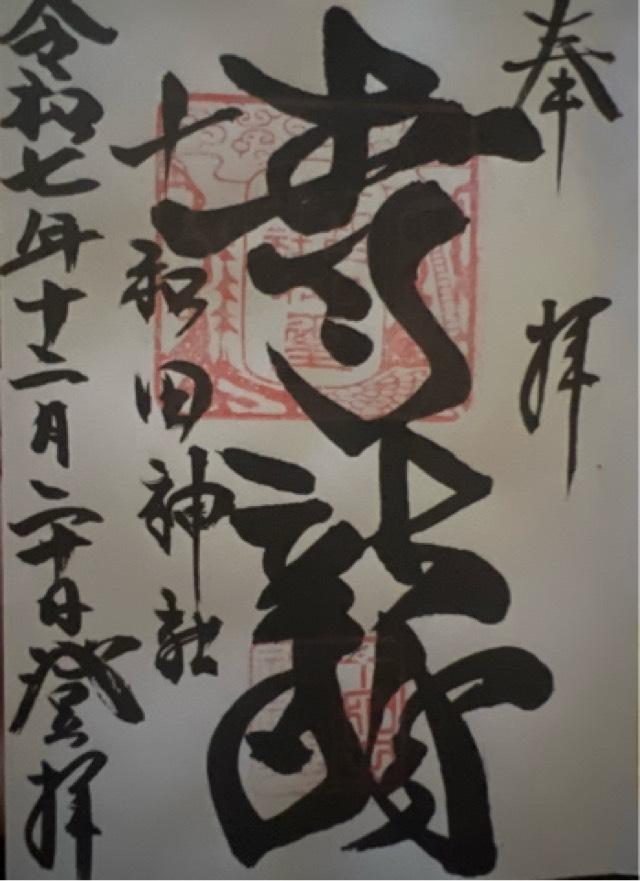 奉拝
青龍
十和田神社
令和七年十二月二十日登拝